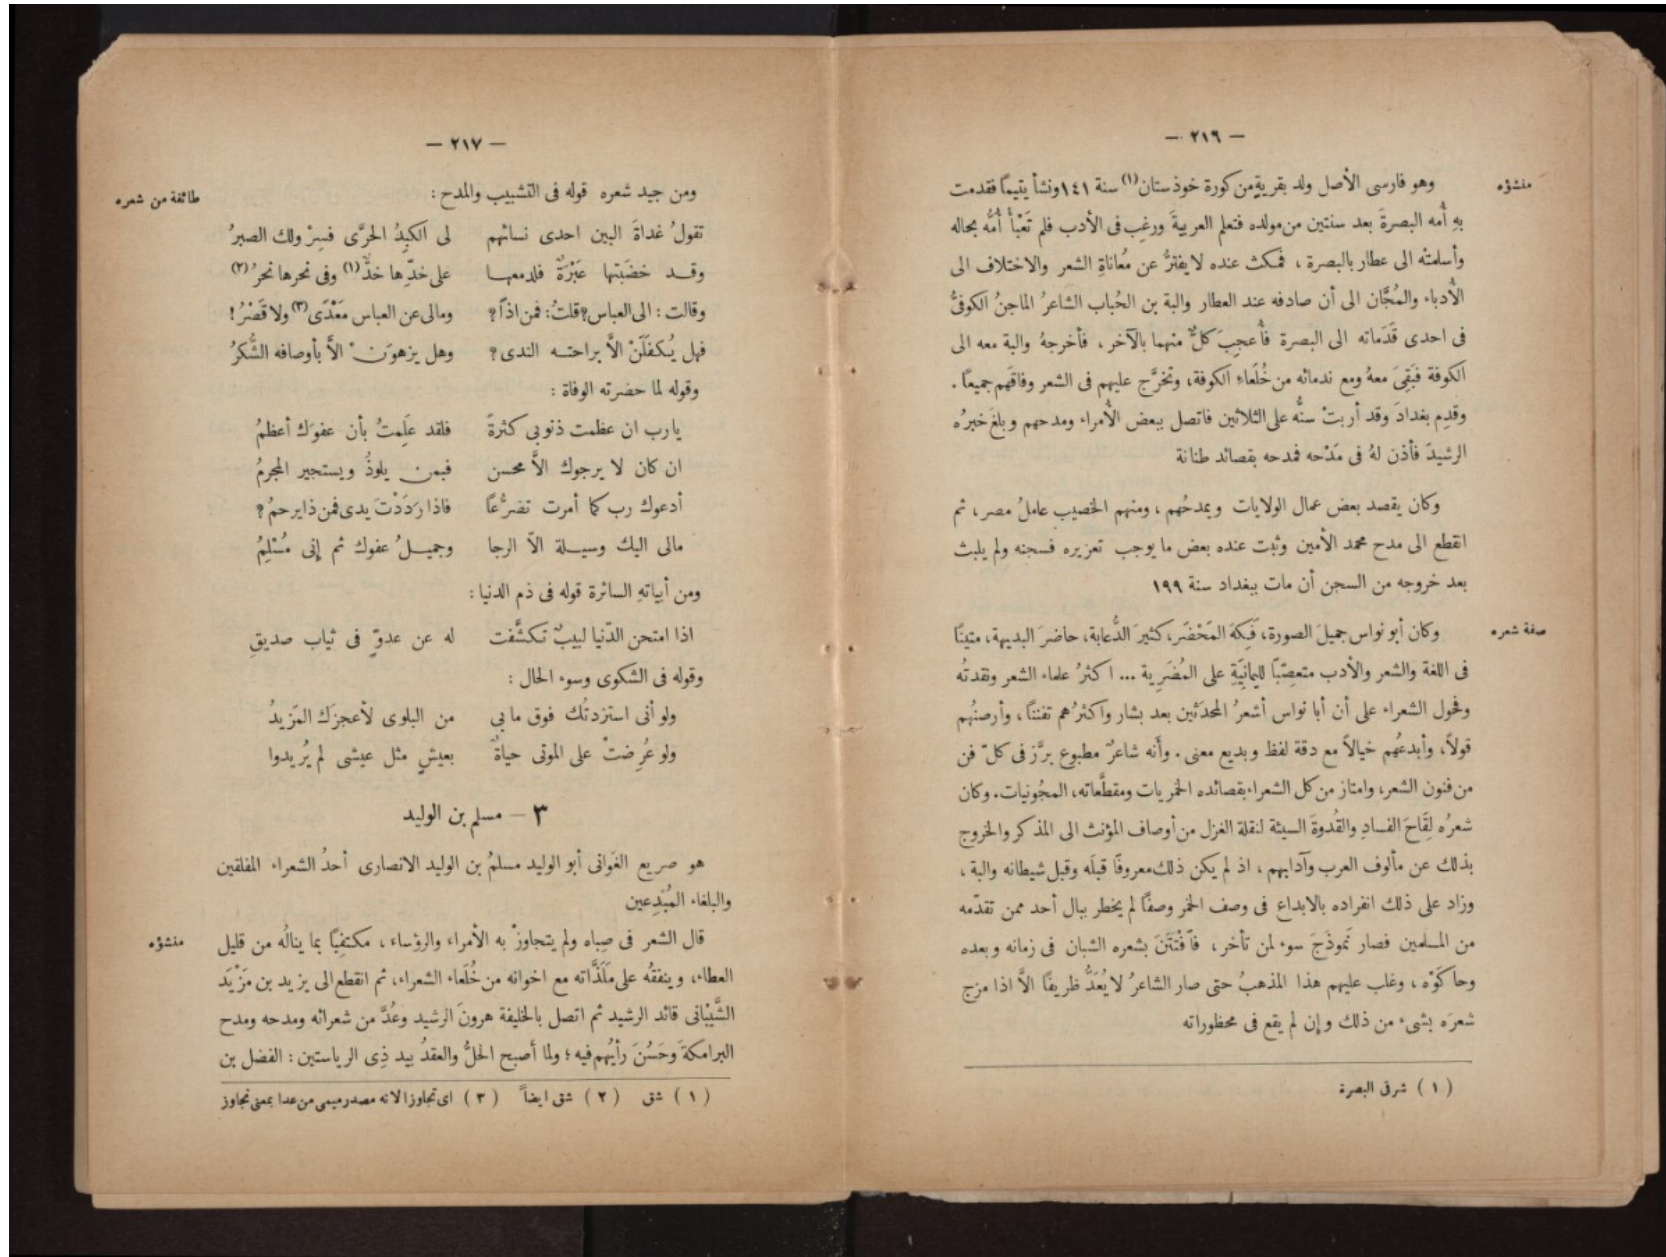 — ٢١٦ —
منشؤه
وهو فارسى الأصل ولد بقرية من كورة خوذستان (١) سنة ١٤١ ونشأ يتيماً فقدمت
بهِ أُمه البصرةَ بعد سنتين من مولده فتعلم العربيةَ ورغِب فى الأدب فلم تَعْبأْ أُمُّه بحاله
وأسلمتْه الى عطار بالبصرة ، فمكث عنده لا يفترُ عن مُعاناةِ الشعر والاختلاف الى
الأُدباء والمُجَّان الى أن صادفه عند العطار والبة بن الحُباب الشاعرُ الماجنُ الكوفىُّ
فى احدى قَدَماته الى البصرة فأُعجِبَ كلٌّ منهما بالآخر ، فأخرجهُ والبة معه الى
الكوفة فبَقِىَ معهُ ومع ندمائه من خُلَعاءِ الكوفة، وتخرَّج عليهم فى الشعر وفاقَهم جميعاً .
وقدِم بغدادَ وقد أربتْ سنُّه على الثلاثين فاتصل ببعض الأُمراء ومدحهم وبلغَ خبرُه
الرشيدَ فأذن لهُ فى مَدْحه فمدحه بقصائد طنانة
وكان يقصد بعض عمال الولايات ويمدحُهم ، ومنهم الخصيب عاملُ مصر ، ثم
انقطع الى مدح محمد الأمين وثبت عنده بعض ما يوجب تعزيره فسجنه ولم يلبث
بعد خروجه من السجن أن مات ببغداد سنة ١٩٩
صفة شعره
وكان أبو نواس جميلَ الصورة، فَكِهَ المَحْضَر، كثيرَ الدُّعابة، حاضرَ البديهة، متيناً
فى اللغة والشعر والأدب متعصِّبًا لليمانِيَّةِ على المُضَرِية ... اكثرُ علماء الشعر ونقدتُه
وفحول الشعراء على أن أبا نواس أشعرُ المحدَثين بعد بشار واكثرُهم تفنناً ، وأرصنُهم
قولاً، وأبدعُهم خيالاً مع دقة لفظ وبديع معنى . وأَنه شاعرٌ مطبوع برَّز فى كلّ فن
من فنون الشعر، وامتاز من كل الشعراء بقصائده الخمريات ومقطَّعاته، المجُونيات. وكان
شعرُه لِقَاحَ الفسادِ والقُدوةَ السيئة لنقلة الغزل من أوصاف المؤنث الى المذكر والخروج
بذلك عن مألوف العرب وآدابهم ، اذ لم يكن ذلك معروفًا قبلَه وقبل شيطانه والبة ،
وزاد على ذلك انفراده بالابداع فى وصف الخمر وصفًا لم يخطر ببال أحد ممن تقدّمه
من المسلمين فصار نَموذَجَ سوء لمن تأخر ، فآفْتَتَنَ بشعره الشبان فى زمانه وبعده
وحاكَوْه ، وغلب عليهم هذا المذهبُ حتى صار الشاعرُ لا يُعَدُّ ظريفًا الاَّ اذا مزج
شعرَه بشىء من ذلك وإن لم يقع فى محظوراته
(١) شرقى البصرة
— ٢١٧ —
طائفة من شعره
ومن جيد شعره قوله فى التشبيب والمدح :
تقولُ غداةَ البين احدى نسائهم لى الكبِدُ الحرَّى فسِرْ ولك الصبرُ
وقد خضَبتها عَبْرَةٌ فلدمعها على خدّها خدٌّ (١) وفى نحرها نحرُ (٢)
وقالت : الى العباس؟ قلتُ: فمن اذاً؟ ومالى عن العباس مَعْدًى (٣) ولا قَصْرُ !
فهل يُكفَلَنْ الاَّ براحتــه الندى؟ وهل يزهوَنْ الاَّ بأوصافه الشُّكرُ
وقوله لما حضرته الوفاة :
يارب ان عظمت ذنوبى كثرةً فلقد علَمِتُ بأن عفوَك أعظمُ
ان كان لا يرجوك الاَّ محسن فبمن يلوذُ ويستجير المجرمُ
أدعوك رب كما أمرت تضرُّعاً فاذا رَدَدْتَ يدى فمن ذا يرحمُ ؟
مالى اليك وسيــلة الاّ الرجا وجميــلُ عفوك ثم إنى مُسْلِمُ
ومن أبياتهِ السائرة قوله فى ذم الدنيا :
اذا امتحن الدّنيا لبيبٌ تكشَّفت له عن عدوٍّ فى ثياب صديقِ
وقوله فى الشكوى وسوء الحال :
ولو أنى استزدتُك فوق ما بي من البلوى لأعجزَك المَزيدُ
ولو عُرِضتْ على الموتى حياةٌ بعيشٍ مثل عيشى لم يُريدوا
٣ – مسلم بن الوليد
هو صريع الغَوانى أبو الوليد مسلمُ بن الوليد الانصارى أحدُ الشعراء المفلقين
والبلغاء المُبْدِعين
منشؤه
قال الشعر فى صِباه ولم يتجاوزْ به الأمراء والرؤساء ، مكتفِيًا بما ينالُه من قليل
العطاء، وينفقُه على مَلَذَّاته مع اخوانه من خُلَعاء الشعراء، ثم انقطع الى يزيد بن مَزْيَد
الشَّيْبانى قائد الرشيد ثم اتصل بالخليفة هرونَ الرشيد وعُدَّ من شعرائه ومدحه ومدح
البرامكةَ وحَسُنَ رأيُهم فيه ؛ ولما أصبح الحلُّ والعقدُ بيد ذِى الرياستين : الفضل بن
(١) شق (٢) شق ايضاً (٣) اى تجاوز الانه مصدر ميمى من عدا بمعنى تجاوز